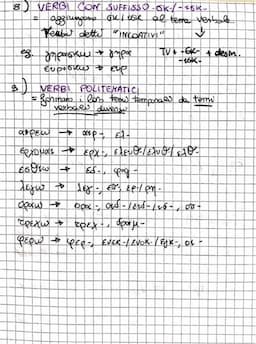 8) VERBI CON SUFFISSO -σκ-/-ισκ-
= aggiungono σκ/ισκ al tema verbale.
Verbi detti "INCOATIVI" ↓
eg. γηρασκω → γηρα TV + -σκ- + desin.
-ισκ-
ευρισκω → ευρ
9) VERBI POLITEMATICI
= formano i loro temi temporali da temi
verbali diversi
αιρεω → αιρ-, ελ-
ερχομαι → ερχ-, ελευθ/ελυθ/ελθ-
εσθιω → εδ-, φαγ-
λεγω → λεγ-, επ-, ερ/ρη-
οραω → ορα-, οιδ-/ειδ-/ιδ-, οπ-
τρεχω → τρεχ-, δραμ-
φερω → φερ-, ενεκ-/ενοκ-/εγκ-, οι-